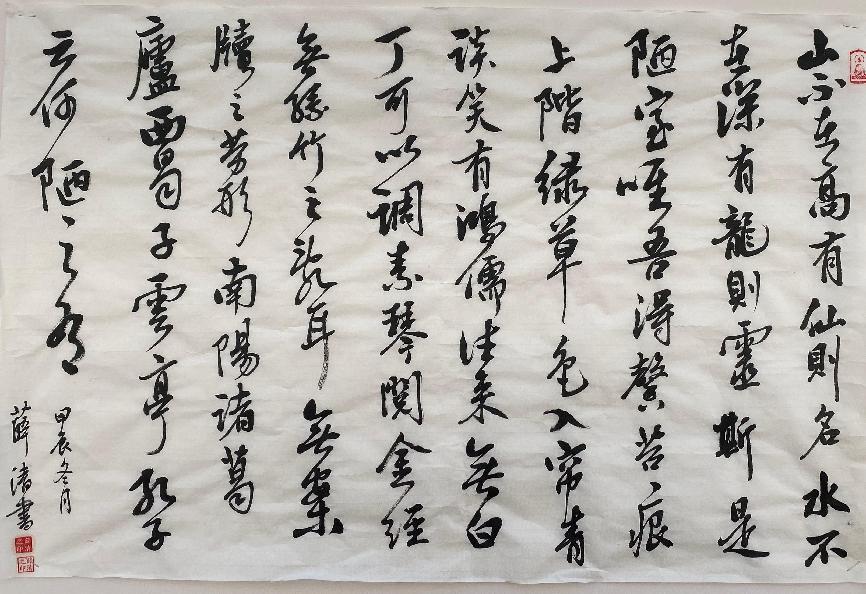 山不在高有仙則名水不
在深有龍則靈斯是
陋室唯吾得馨苔痕
上階緑草色入帘青
談笑有鴻儒往来無白
丁可以調素琴閲金經
無絲竹之亂耳無案
牘之劳形南陽诸葛
廬西蜀子雲亭孔子
云何陋之有
甲辰冬月
薛涛書